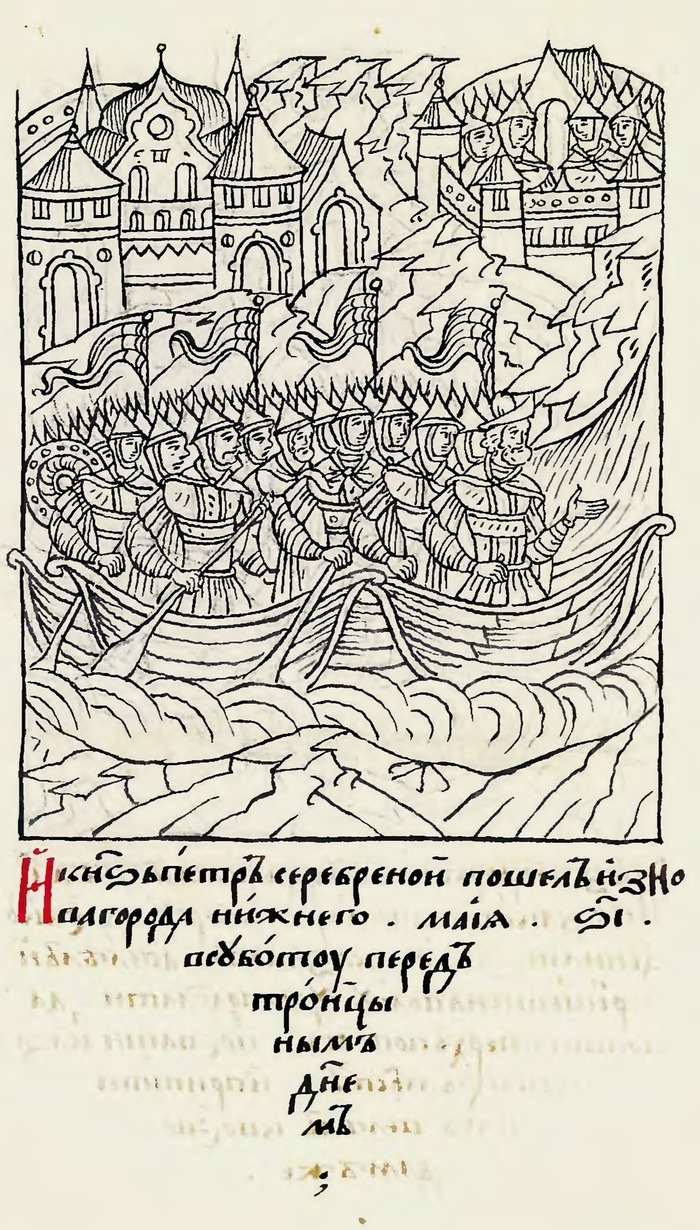 И҆ кн҃зь петръ серебреной пошелъ и҆з но
вагорода ни́жнего . маі́а . ѕ҃і .
въ субо́тоу передъ
тро́ицы
нымъ
дн҃е
мъ
;